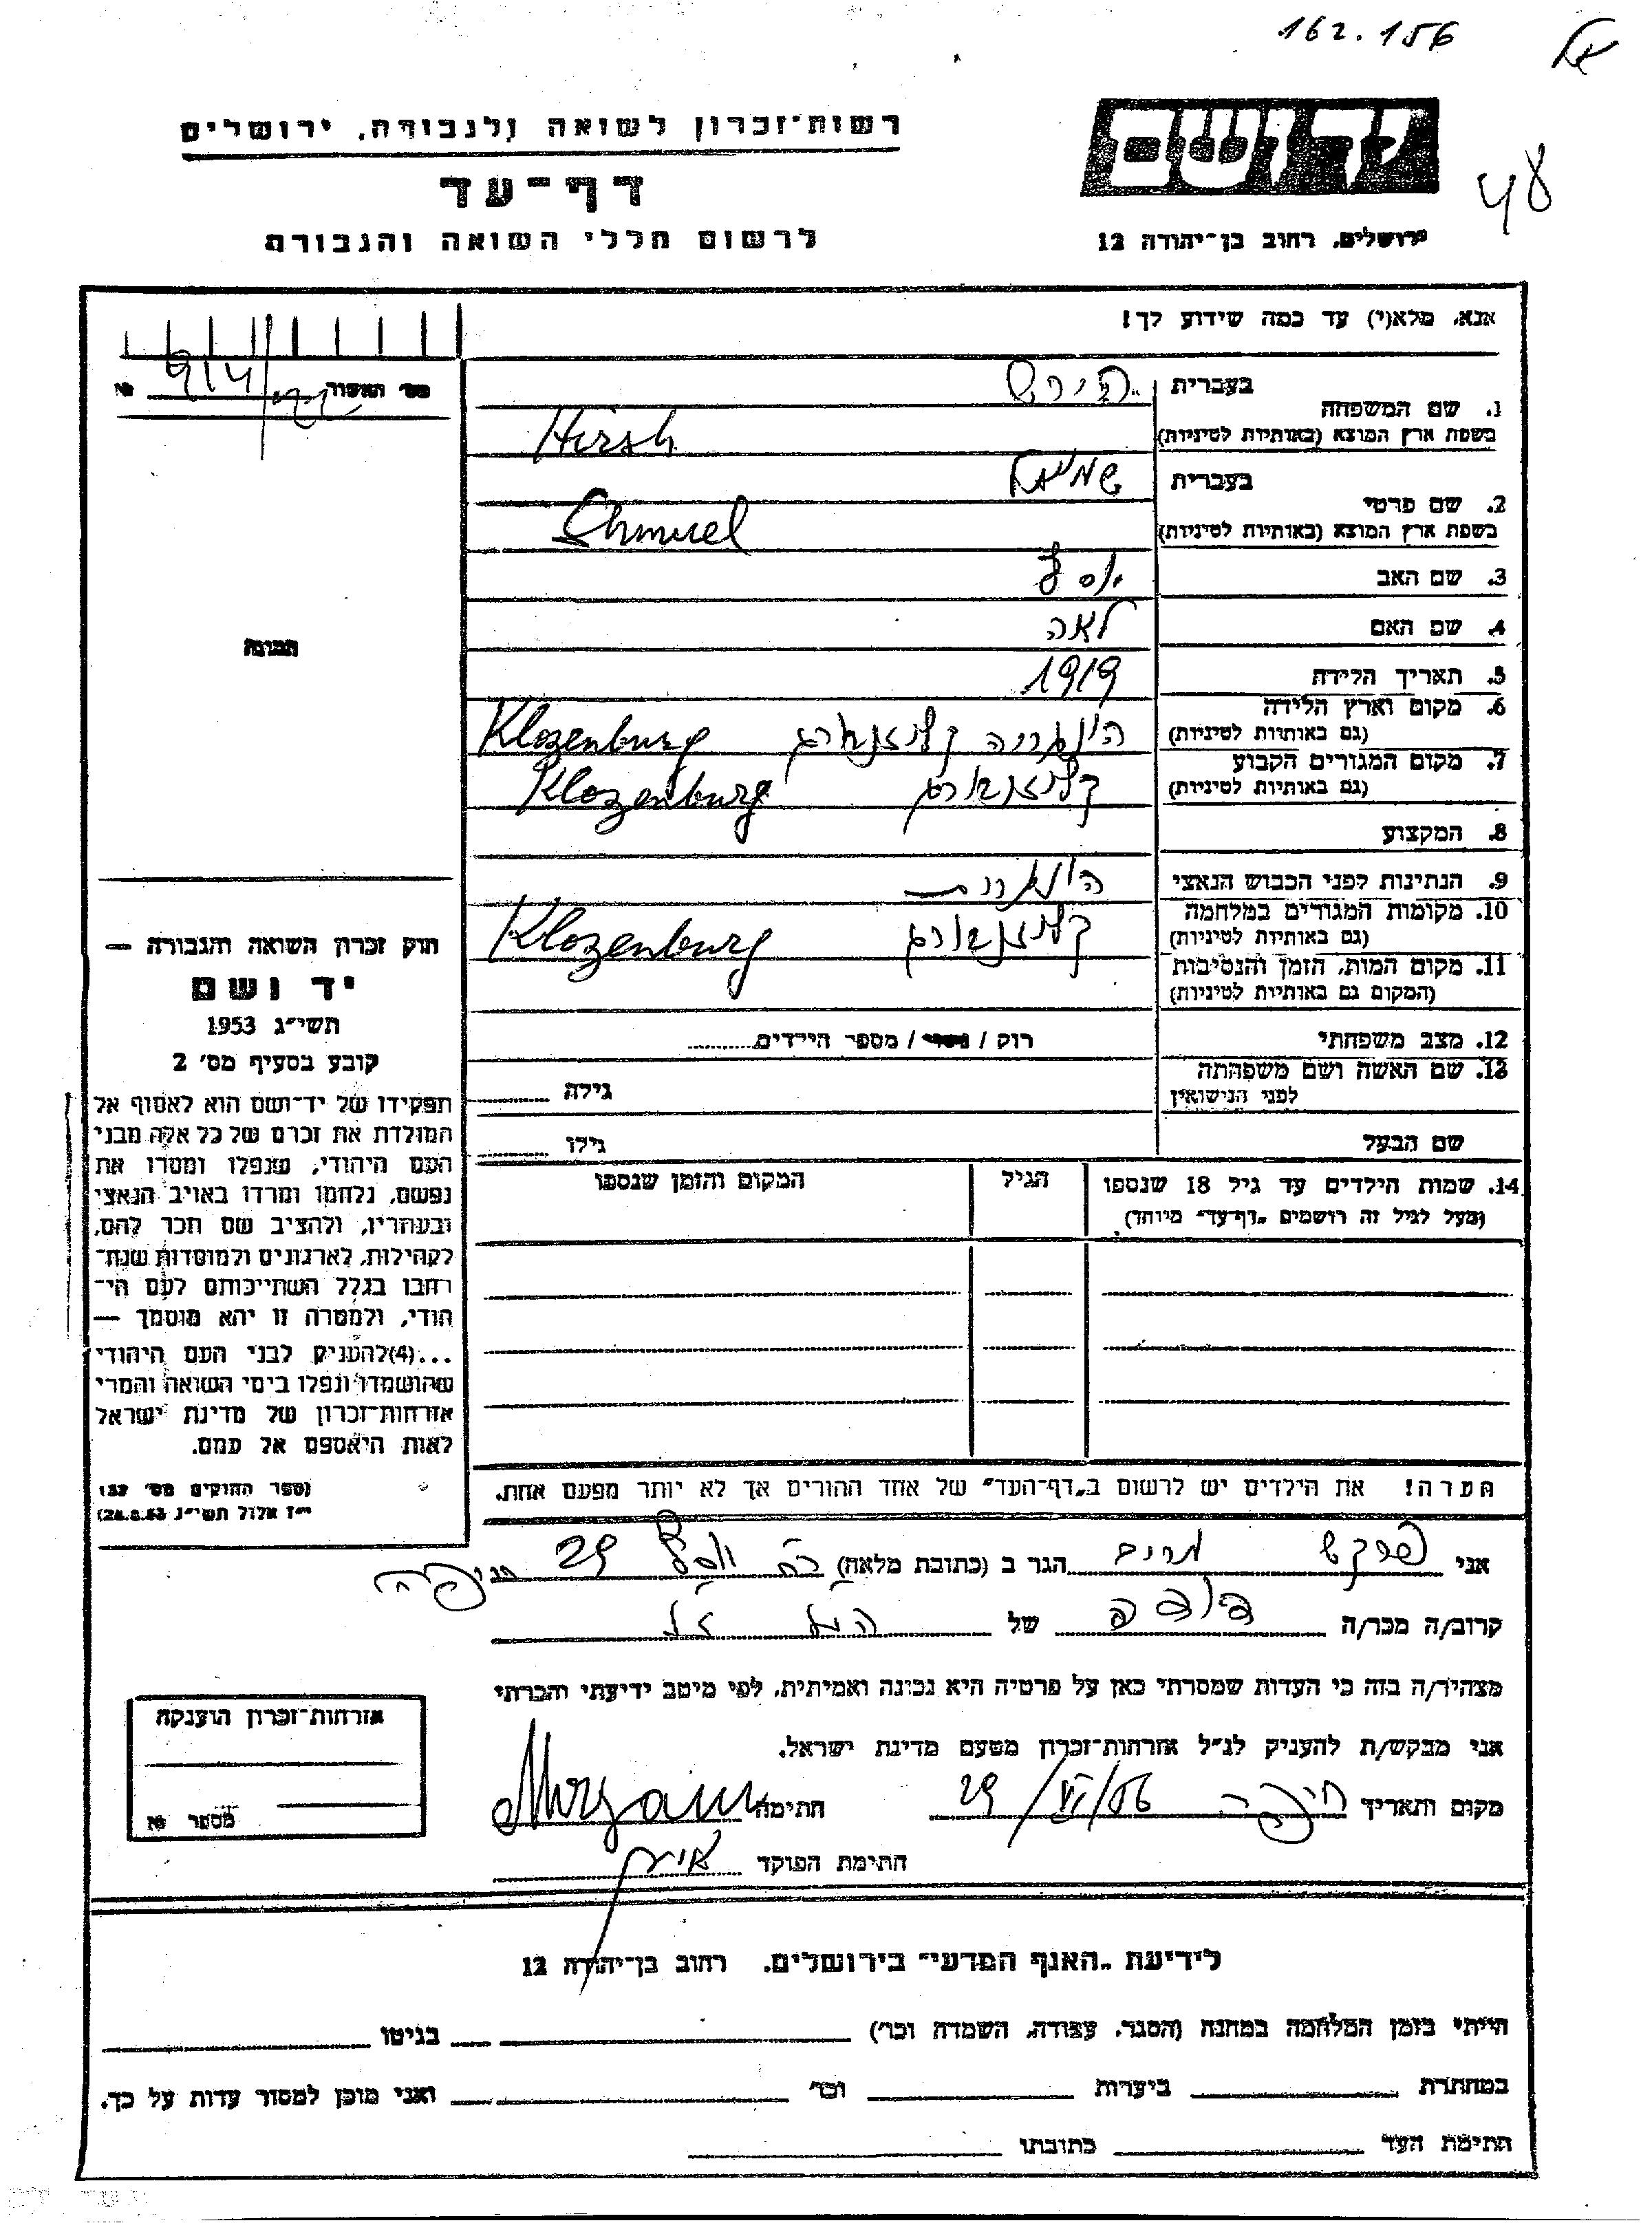 162.156
48
יד ושם
ירושלים, רחוב בן־יהודה 12
רשות־זכרון לשואה ולגבורה, ירושלים
דף־עד
לרשום חללי השואה והגבורה
אנא, מלא(י) עד כמה שידוע לך!
בעברית הירש
1. שם המשפחה
בשפת ארץ המוצא (באותיות לטיניות) Hirsh
בעברית שמואל
2. שם פרטי
בשפת ארץ המוצא (באותיות לטיניות) Shmuel
3. שם האב יוסף
4. שם האם לאה
5. תאריך הלידה 1919
6. מקום וארץ הלידה
(גם באותיות לטיניות) הונגריה קלויזנבורג Klozenburg
7. מקום המגורים הקבוע
(גם באותיות לטיניות) קלויזנבורג Klozenburg
8. המקצוע
9. הנתינות לפני הכבוש הנאצי הונגרית
10. מקומות המגורים במלחמה
(גם באותיות לטיניות) קלויזנבורג Klozenburg
11. מקום המות, הזמן והנסיבות
(המקום גם באותיות לטיניות)
12. מצב משפחתי רוק / נשוי / מספר הילדים
13. שם האשה ושם משפחתה
לפני הנישואין גילה
שם הבעל גילו
14. שמות הילדים עד גיל 18 שנספו הגיל המקום והזמן שנספו
(מעל לגיל זה רושמים „דף־עד” מיוחד)
הערה! את הילדים יש לרשום ב„דף־העד” של אחד ההורים אך לא יותר מפעם אחת.
מס' האשור №
תמונה
חוק זכרון השואה והגבורה —
יד ושם
תשי״ג 1953
קובע בסעיף מס׳ 2
תפקידו של יד־ושם הוא לאסוף אל
המולדת את זכרם של כל אלה מבני
העם היהודי, שנפלו ומסרו את
נפשם, נלחמו ומרדו באויב הנאצי
ובעוזריו, ולהציב שם וזכר להם,
לקהילות, לארגונים ולמוסדות שנח־
רבו בגלל השתייכותם לעם הי־
הודי, ולמטרה זו יהא מוסמך —
...(4)להעניק לבני העם היהודי
שהושמדו ונפלו בימי השואה והמרי
אזרחות־זכרון של מדינת ישראל
לאות היאספם אל עמם.
(ספר החוקים מס׳ 132
י״ז אלול תשי״ג 28.8.53)
אני מרים הגר ב (כתובת מלאה) רח׳ 29 חיפה
קרוב/ה מכר/ה דודה של הנ״ל
מצהיר/ה בזה כי העדות שמסרתי כאן על פרטיה היא נכונה ואמיתית, לפי מיטב ידיעתי והכרתי
אני מבקש/ת להעניק לנ״ל אזרחות־זכרון מטעם מדינת ישראל.
מקום ותאריך חיפה 29/VI/56 חתימה
חתימת הפוקד
אזרחות־זכרון הוענקה
מספר №
לידיעת „האגף המדעי” בירושלים. רחוב בן־יהודה 12
הייתי בזמן המלחמה במחנה (הסגר, עבודה, השמדה וכו׳) בגיטו
במחתרת ביערות וכו׳ ואני מוכן למסור עדות על כך.
חתימת העד כתובתו